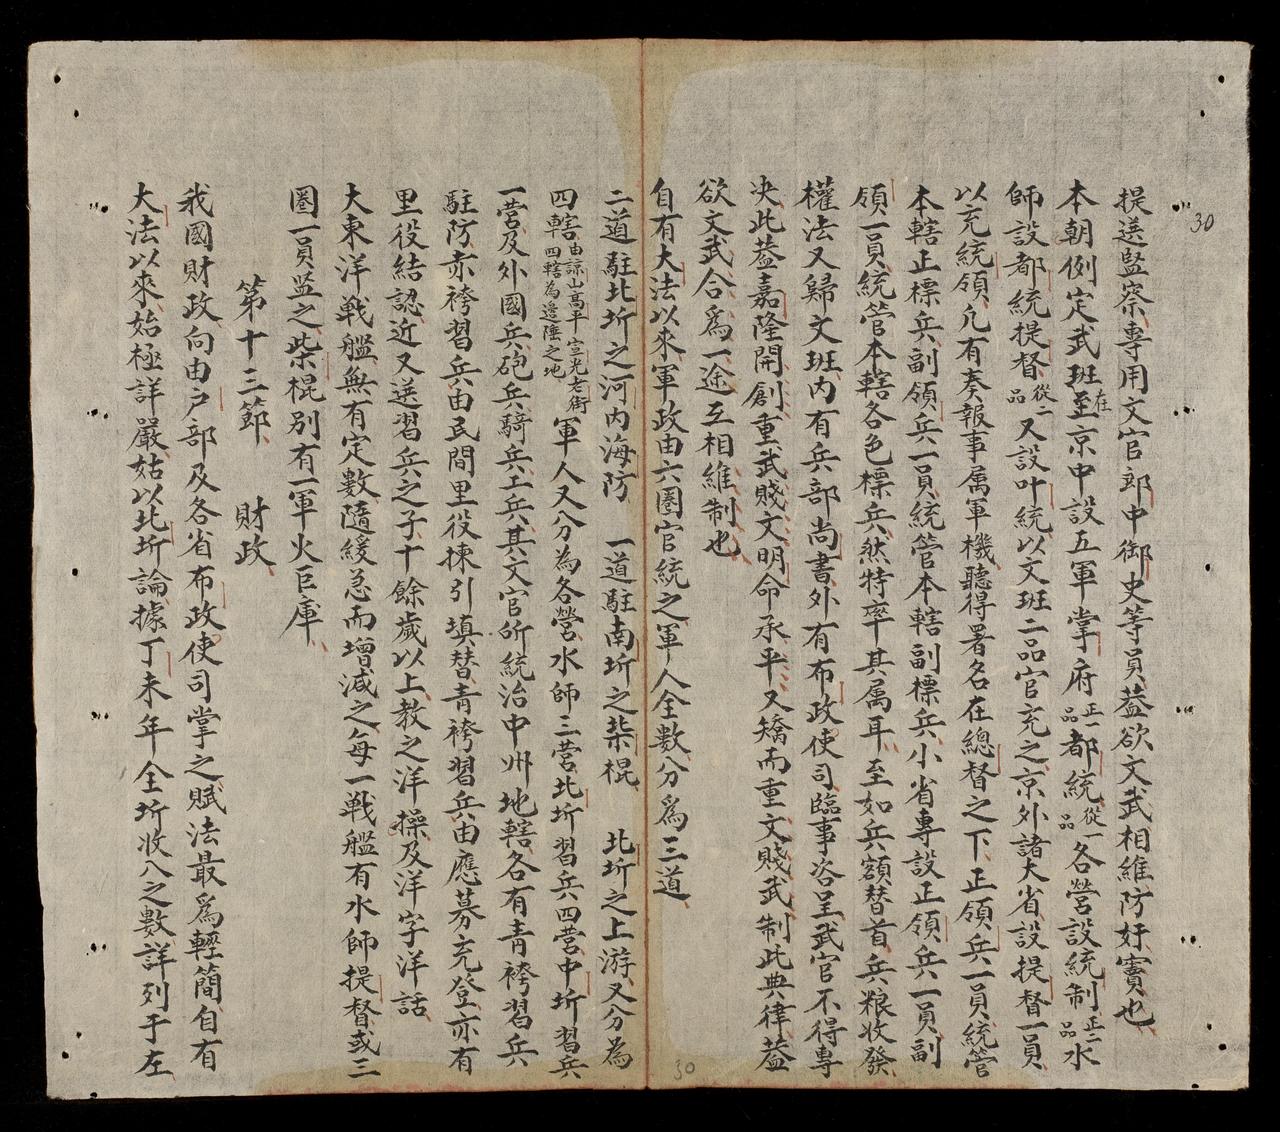 30
提送監察專用文官郎中御史等員蓋欲文武相維防奸竇也
本朝例定武班至在京中設五軍掌府正一品都統從一品各營設統制正二品水
師設都統提督從二品又設叶統以文班二品官充之京外諸大省設提督一員
以充統領凢有奏報事属軍機聽得署名在總督之下正領兵一員統管
本轄正標兵副領兵一員統管本轄副標兵小省專設正領兵一員副
領一員統管本轄各色標兵然特卒其属耳至如兵額替首兵粮收發
權法又歸文班内有兵部尚書外有布政使司臨事咨呈武官不得專
决此葢嘉隆開創重武賤文明命承平又矯而重文賤武制此典律葢
欲文武合爲一途互相維制也
自有大法以來軍政由六圈官統之軍人全數分爲三道
二道駐北圻之河内海防 一道駐南圻之柴棍 北圻之上游又分為
四轄由諒山高平宣光老街四轄為邊陲之地軍人又分為各營水師三营北圻習兵四营中圻習兵
一营及外國兵砲兵騎兵工兵其文官所統治中州地轄各有青袴習兵
駐防赤袴習兵由民間里役揀引填替青袴習兵由應募充登亦有
里役結認近又送習兵之子十餘歲以上教之洋操及洋字洋話
大東洋戦艦無有定數隨緩急而增減之每一戦艦有水師提督或三
圈一員监之柴棍別有一軍火巨庫
第十三節 財政
我國財政向由户部及各省布政使司掌之賦法最爲輕簡自有
大法以來始極詳嚴姑以北圻論據丁未年全圻收入之數詳列于左
30